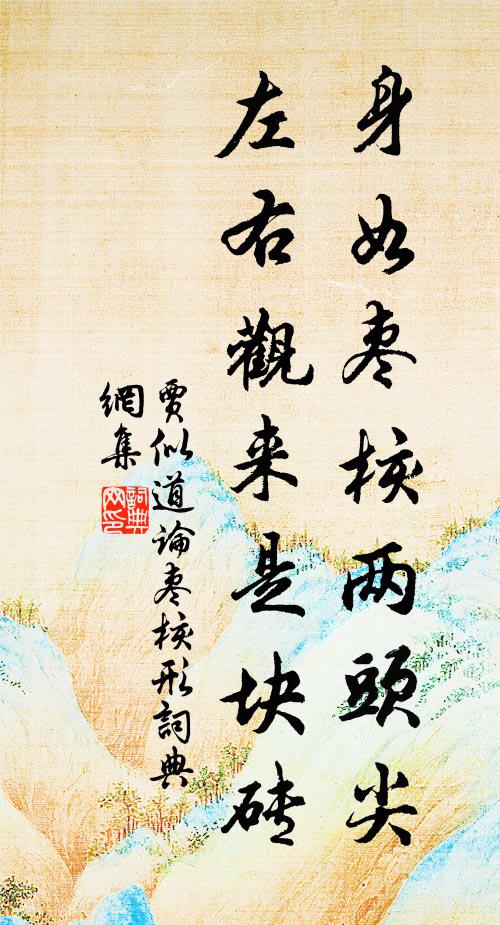 身如枣核两頭尖
左右觀来是块砖
賈似道論枣核形詞典
網集
詞典
网印